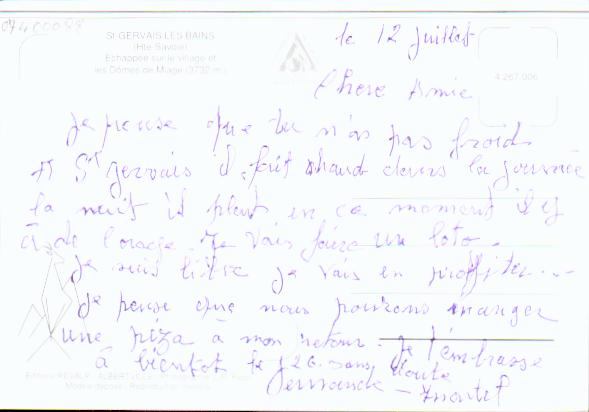 07400088
ST-GERVAIS LES BAINS
(Hte Savoie)
Echappée sur le village et
les Dômes de Miage (3732 m.)
4.267.006
le 12 juillet
Chere Amie
je pense que tu n'as pas froid
A St gervais il fait chaud dans la journée
la nuit il pleut en ce moment il y
à de l'orage. Je vais faire un loto.
je suis libre je vais en proffiter...
je pense que nous pourrons manger
une piza à mon retour. je t'embrasse
à bientot le 26 sans doute